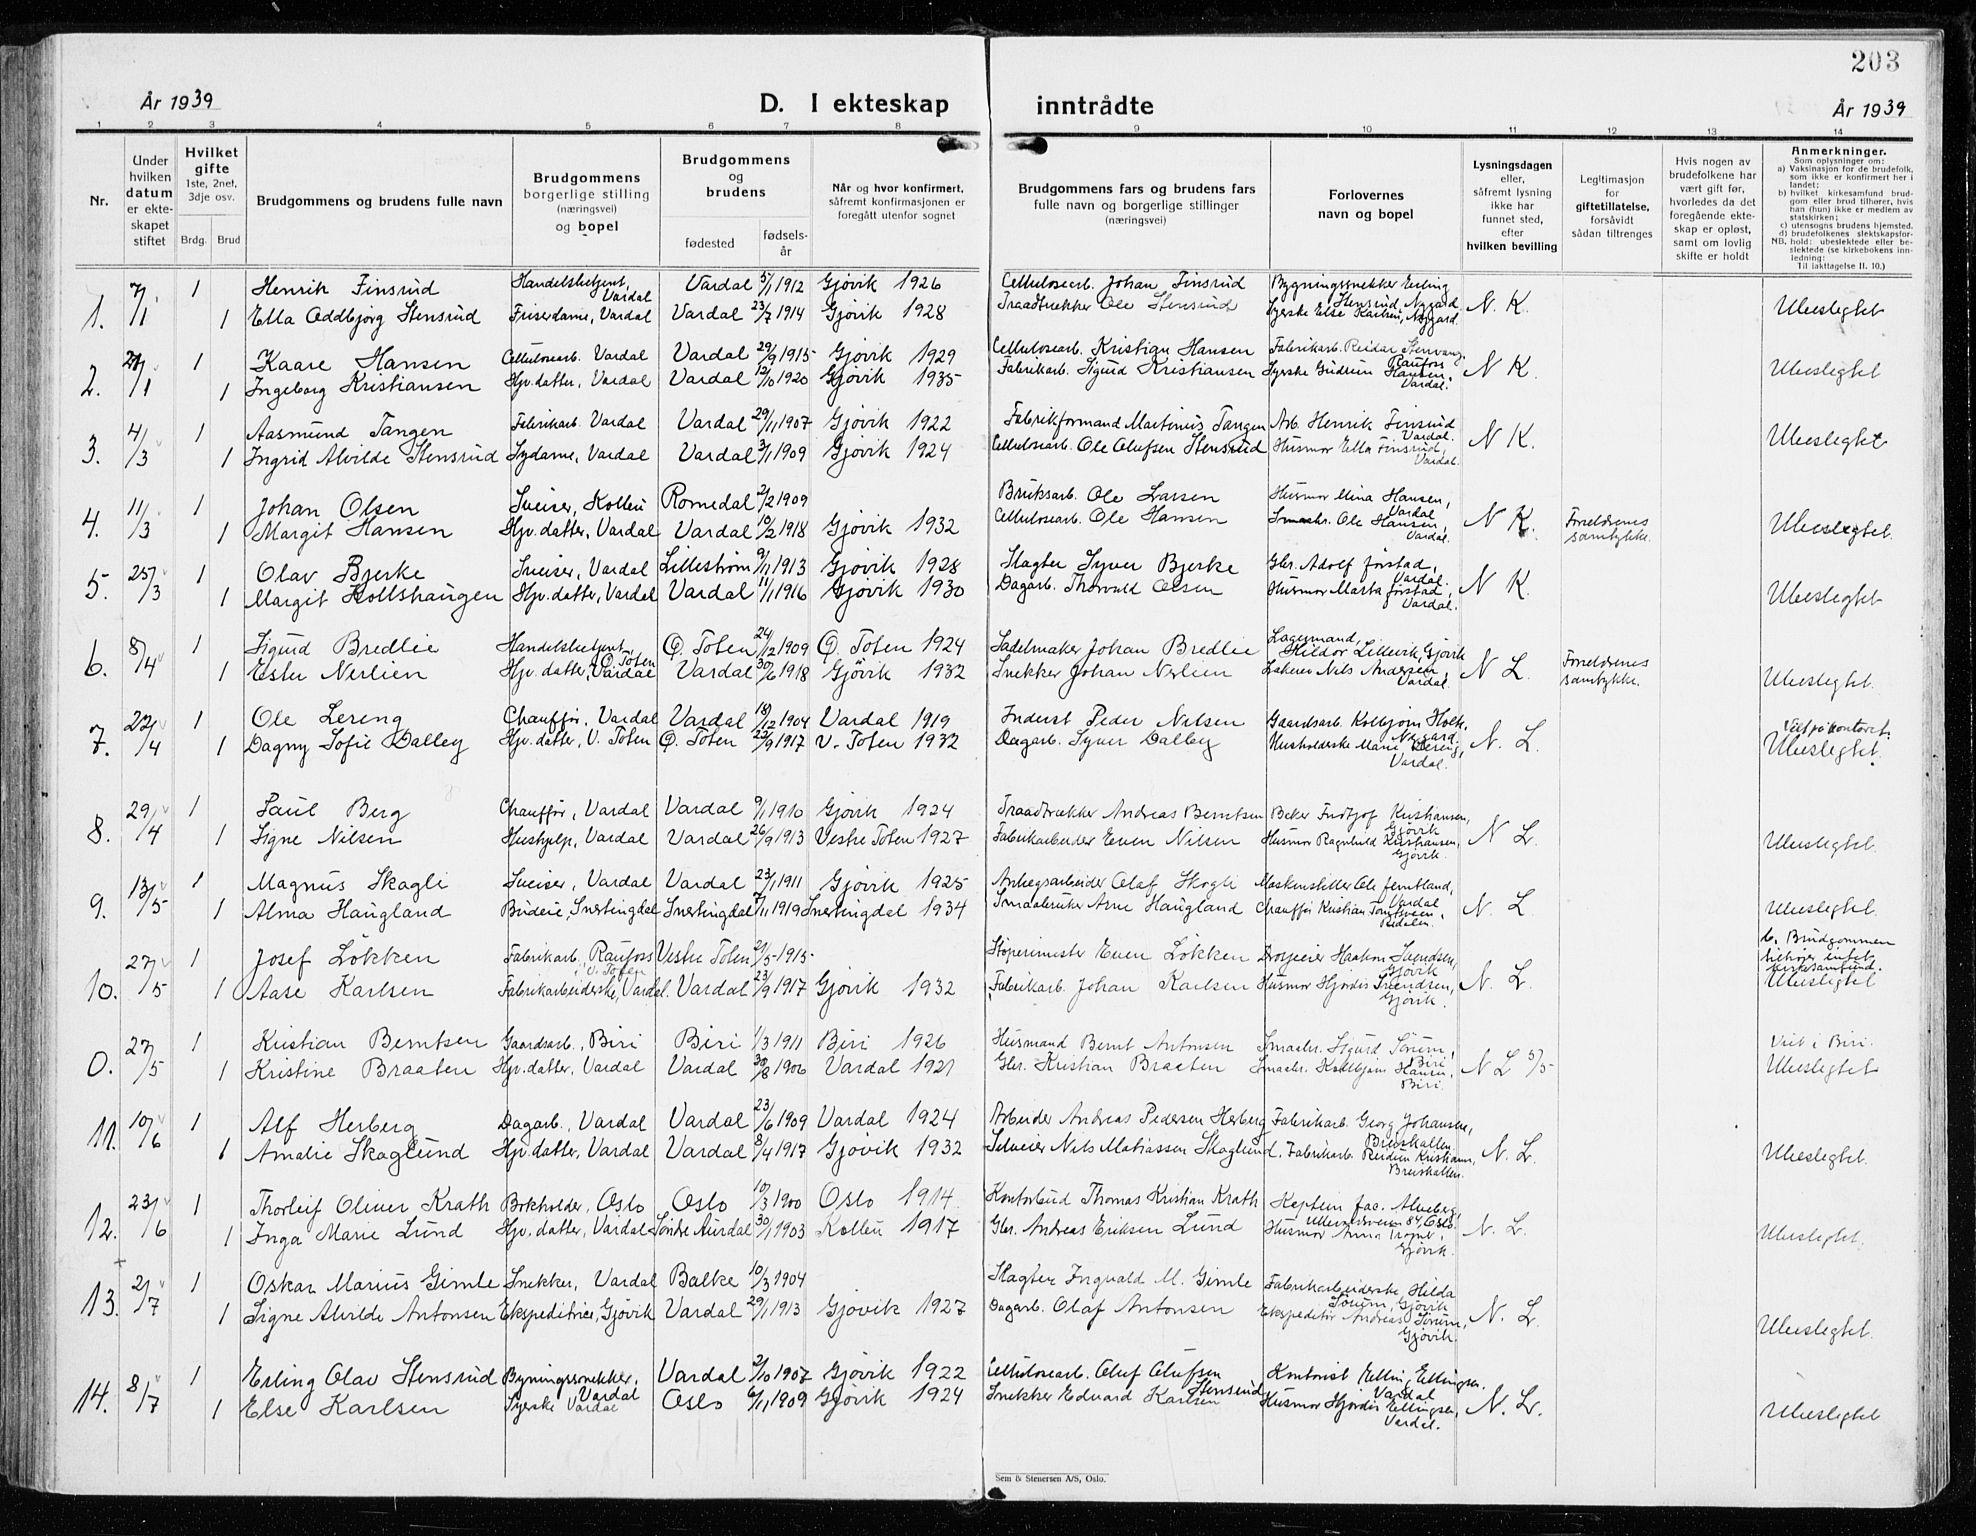 203
År 1939
D. I ekteskap inntrådte
År 1939
1 2 3 4 5 6 7 8 9 10 11 12 13 14
Nr.
Under hvilken datum er ekteskapet stiftet
Hvilket gifte
1ste, 2net, 3dje osv.
Brdg. Brud
Brudgommens og brudens fulle navn
Brudgommens borgerlige stilling (næringsvei) og bopel
Brudgommens og brudens
fødested fødselsår
Når og hvor konfirmert, såfremt konfirmasjonen er foregått utenfor sognet
Brudgommens fars og brudens fars fulle navn og borgerlige stillinger (næringsvei)
Forlovernes navn og bopel
Lysningsdagen eller, såfremt lysning ikke har funnet sted, efter hvilken bevilling
Legitimasjon for giftetillatelse, forsåvidt sådan tiltrenges
Hvis nogen av brudefolkene har vært gift før, hvorledes da det foregående ekteskap er opløst, samt om lovlig skifte er holdt
Anmerkninger.
Som oplysninger om:
a) Vaksinasjon for de brudefolk, som ikke er konfirmert her i landet;
b) hvilket kirkesamfund brudgom eller brud tilhører, hvis han (hun) ikke er medlem av statskirken;
c) utensogns brudens hjemsted.
d) brudefolkenes slektskapsforhold: ubeslektede eller beslektede (se kirkebokens innledning:
NB. Til iakttagelse II. 10.)
1. 7/1 1 Henrik Finsrud Handelsbetjent, Vardal Vardal 5/1 1912 Gjøvik 1926 Cellulosearb. Johan Finsrud Bygningssnekker Erling Stensrud, Nygard
1 Ella Oddbjørg Stensrud Friserdame, Vardal Vardal 23/7 1914 Gjøvik 1928 Traadtrækker Ole Stensrud Syerske Else Karlsen, Nygard. N. K. Ubeslegtet
2. 21/1 1 Kaare Hansen Cellulosearb. Vardal Vardal 29/9 1915 Gjøvik 1929 Cellulosearb. Kristian Hansen Fabrikarb. Reidar Stenvang, Raufoss
1 Ingeborg Kristiansen Hjv. datter, Vardal Vardal 12/10 1920 Gjøvik 1935 Fabrikarb. Sigurd Kristiansen Syerske Gudrun Hansen, Vardal. N K. Ubeslegtet.
3. 4/3 1 Aasmund Tangen Fabrikarb. Vardal Vardal 29/11 1907 Gjøvik 1922 Fabrikformand Martinius Tangen Arb. Henrik Finsrud Vardal.
1 Ingrid Alvilde Stensrud Sydame, Vardal Vardal 3/1 1909 Gjøvik 1924 Cellulosearb. Ole Olufsen Stensrud Husmor Ella Finsrud, Vardal. N K. Ubeslegtet
4. 11/3 1 Johan Olsen Sveiser, Kolbu Romedal 2/2 1909 Bruksarb. Ole Larsen Husmor Mina Hansen, Vardal
1 Margit Hansen Hjv. datter, Vardal Vardal 10/2 1918 Gjøvik 1932 Cellulosearb. Ole Hansen Smaabr. Ole Hansen, Vardal. N K. Foreldrenes samtykke. Ubeslegtet.
5. 25/3 1 Olav Bjerke Sveiser, Vardal Lillestrøm 9/11 1913 Gjøvik 1928 Slagter Syver Bjerke Gbr. Adolf Jørstad, Vardal.
1 Margit Kollshaugen Hjv. datter, Vardal Vardal 11/1 1916 Gjøvik 1930 Dagarb. Thorvald Olsen Husmor Marta Jørstad, Vardal. N K. Ubeslegtet
6. 8/4 1 Sigurd Bredlie Handelsbetjent, Ø. Toten Ø. Toten 24/12 1909 Ø. Toten 1924 Sadelmaker Johan Bredlie Lagermand, Hildor Lillevik, Gjøvik
1 Ester Nerlien Hjv. datter, Vardal Vardal 30/6 1918 Gjøvik 1932 Snekker Johan Nerlien Nils Andersen, Vardal. N L. Foreldrenes samtykke. Ubeslegtet.
7. 22/4 1 Ole Lereng Chauffør, Vardal Vardal 18/12 1904 Vardal 1919 Inderst Peder Nilsen Gaardsarb. Kolbjørn Holk, Nygard
1 Dagny Sofie Dalby Hjv. datter, V. Toten Ø. Toten 22/9 1917 V. Toten 1932 Dagarb. Syver Dalby Husholderske Marie Lereng, Vardal. N. L. Viet på kontoret. Ubeslegtet.
8. 29/4 1 Paul Berg Chauffør, Vardal Vardal 9/1 1910 Gjøvik 1924 Traadtrækker Andreas Berntsen Beker Fridtjof Kristiansen, Gjøvik
1 Signe Nilsen Hushjelp, Vardal Vardal 26/9 1913 Vestre Toten 1927 Fabrikarbeider Even Nilsen Husmor Ragnhild Kristiansen, Gjøvik. N L. Ubeslegtet.
9. 13/5 1 Magnus Skagli Sveiser, Vardal Vardal 23/1 1911 Gjøvik 1925 Anlegsarbeider Olaf Skogli Maskinstiller Ole Jemtland, Vardal
1 Alma Haugland Budeie, Snertingdal Snertingdal 7/11 1919 Snertingdal 1934 Smaabruker Arne Haugland Chauffør Kristian Tomtsveen, Redalen. N. L Ubeslegtet.
10. 27/5 1 Josef Løkken Fabrikarb., Raufoss V. Toten Vestre Toten 21/5 1915 Støperimester Even Løkken Drosjeeier Haakon Svendsen, Gjøvik b. Brudgommen tilhører intet kirkesamfund.
1 Aase Karlsen Fabrikarbeiderske, Vardal. Vardal 23/9 1917 Gjøvik 1932 Fabrikarb. Johan Karlsen Husmor Hjørdis Svendsen, Gjøvik. N. L. Ubeslegtet
0. 27/5 1 Kristian Berntsen Gaardsarb., Biri Biri 1/3 1911 Biri 1926 Husmand Bernt Antonsen Smaabr. Sigurd Sørum, Biri Viet i Biri.
1 Kristine Braaten Hjv. datter, Vardal Vardal 30/8 1906 Vardal 1921 Gbr. Kristian Braaten Smaabr. Kolbjørn Hansen, Biri. N L 5/5 Ubeslegtet
11. 10/6 1 Alf Herberg Dagarb., Vardal Vardal 23/6 1909 Vardal 1924 Arbeider Andreas Pedersen Herberg Fabrikarb. Georg Johansen, Breiskallen
1 Amalie Skaglund Hjv. datter, Vardal Vardal 8/4 1917 Gjøvik 1932 Selveier Nils Matiassen Skaglund. Fabrikarb. Reidun Kristians., Breiskallen. N. L. Ubeslegtet.
12. 23/6 1 Thorleif Oliver Krath Bokholder, Oslo Oslo 10/3 1900 Oslo 1914. Kontorbud Thomas Kristian Krath Keptein Jac. Alveberg, Ullevaalsveien 84, Oslo.
1 Inga Marie Lund Hjv. datter, Vardal Søndre Aurdal 30/1 1903 Kolbu 1917 Gbr. Andreas Eriksen Lund Husmor Anna Gjøvik. N. L. Ubeslegtet.
13. 2/7 1 Oskar Marius Gimle Snekker, Vardal Balke 10/3 1904 Slagter Ingvald M. Gimle Fabrikarbeiderske, Hilda Sørum, Gjøvik
1 Signe Alvilde Antonsen Ekspeditrice, Gjøvik Vardal 29/1 1913 Gjøvik 1927 Dagarb. Olaf Antonsen Ekspeditør Andreas Sørum, Gjøvik. N. L. Ubeslegtet.
14. 8/7 1 Erling Olav Stensrud Bygningssnekker, Vardal Vardal 2/10 1907 Gjøvik 1922 Cellulosearb. Oluf Olufsen Stensrud Kontorist Elling Ellingsen. Vardal
1 Else Karlsen Syerske Vardal Oslo 6/11 1909 Gjøvik 1924 Snekker Edvard Karlsen Husmor Hjørdis Ellingsen, Vardal. N. L. Ubeslegtet
Sem & Stenersen A/S, Oslo.